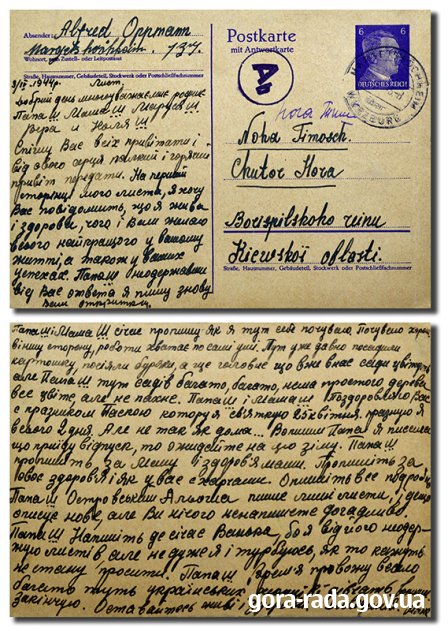 Absender: Alfred Oppmann
Margetshöchheim. 137.
Wohnort, auch Zustell- oder Leitpostamt
Straße, Hausnummer, Gebäudeteil, Stockwerk oder Postschließfachnummer
Postkarte
mit Antwortkarte
6 6
DEUTSCHES REICH
Лист.
Добрий день многоуважаемі родие
Папа!! Маша!!! Маруся!!!
Вера и Коля!!!
Спішу Вас всех привітати і
від свого серця палкий і горячий
привіт передати. На первій
сторінці мого листа, я хочу
Вас повідомить, що я жива
і здорова, чого і Вам желаю
всього найкращого у вашому
житті, а також у ваших
успехах. Папа!!! Неодержавши
від Вас ответа я пишу знову
Вам открытку.
Noha Timosch.
Chutor Hora
Borispilskoho reinu
Kiewskoi oblasti.
Straße, Hausnummer, Gebäudeteil, Stockwerk oder Postschließfachnummer
Папа!!! і Маша!!! січас пропишу як я тут себе почуваю. Почуваю
роботи хватає по самі дні. Тут уже давно посадили
картошку, посіяли буряки, а ще головне що вже внас сади цвітуть
але Папа!!! тут садів багато, багато, нема простого дерева
все цвіте, але не пахне. Папа!!! і Маша!!! Поздоровляю Вас
с празником Паскою которую святкую
всього 2 дня. Але не так як дома... Папа! Я писала
що приїду відпуск, то ожидайте на цю зіму. Папа!!!
пропишіть за Машу і здоров'я мами. Пропишіть за
своє здоров'я і як у вас с харчами. Опишіть все подробно
Папа!!! Островський Альоша пише мині листи, і дещо
описує нове, але Ви нічого ненапишете догадливо.
Папа!!! Напишіть де січас Ванька, бо я від його неодер-
жую листів але не дуже і турбуюсь, як то кажуть
не стану просити. Папа!!! Время провожу весело
багато тут українських
закінчую. Оставайтесь живі
gora-rada.gov.ua